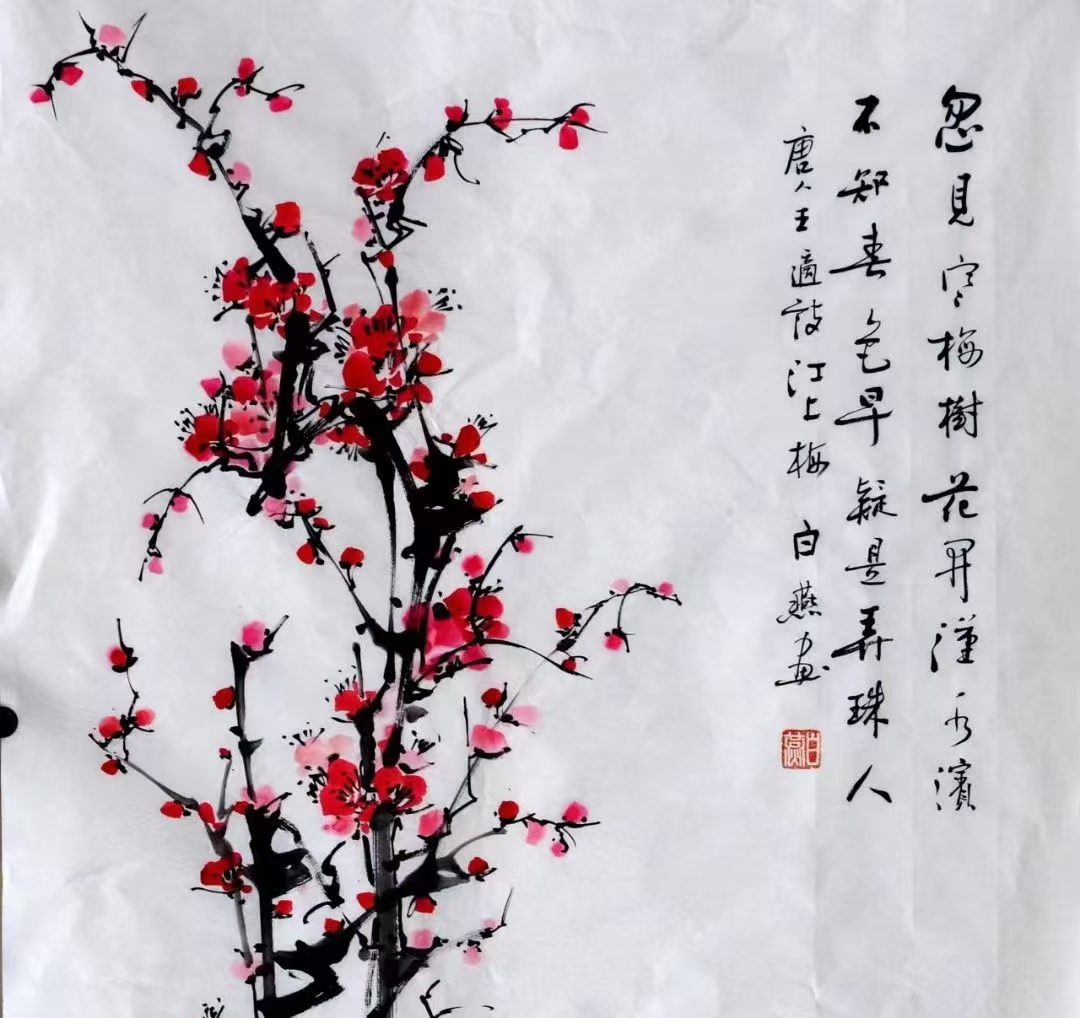 忽見寒梅樹花開漢水濱
不知春色早疑是弄珠人
唐人王適詩江上梅 白燕畫
白燕